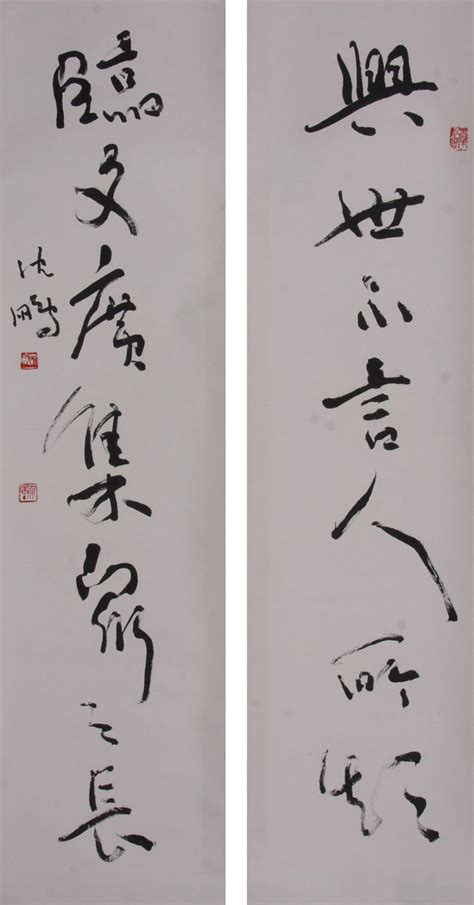 與世不言人所短
臨文廣集衆之長
沈鵬